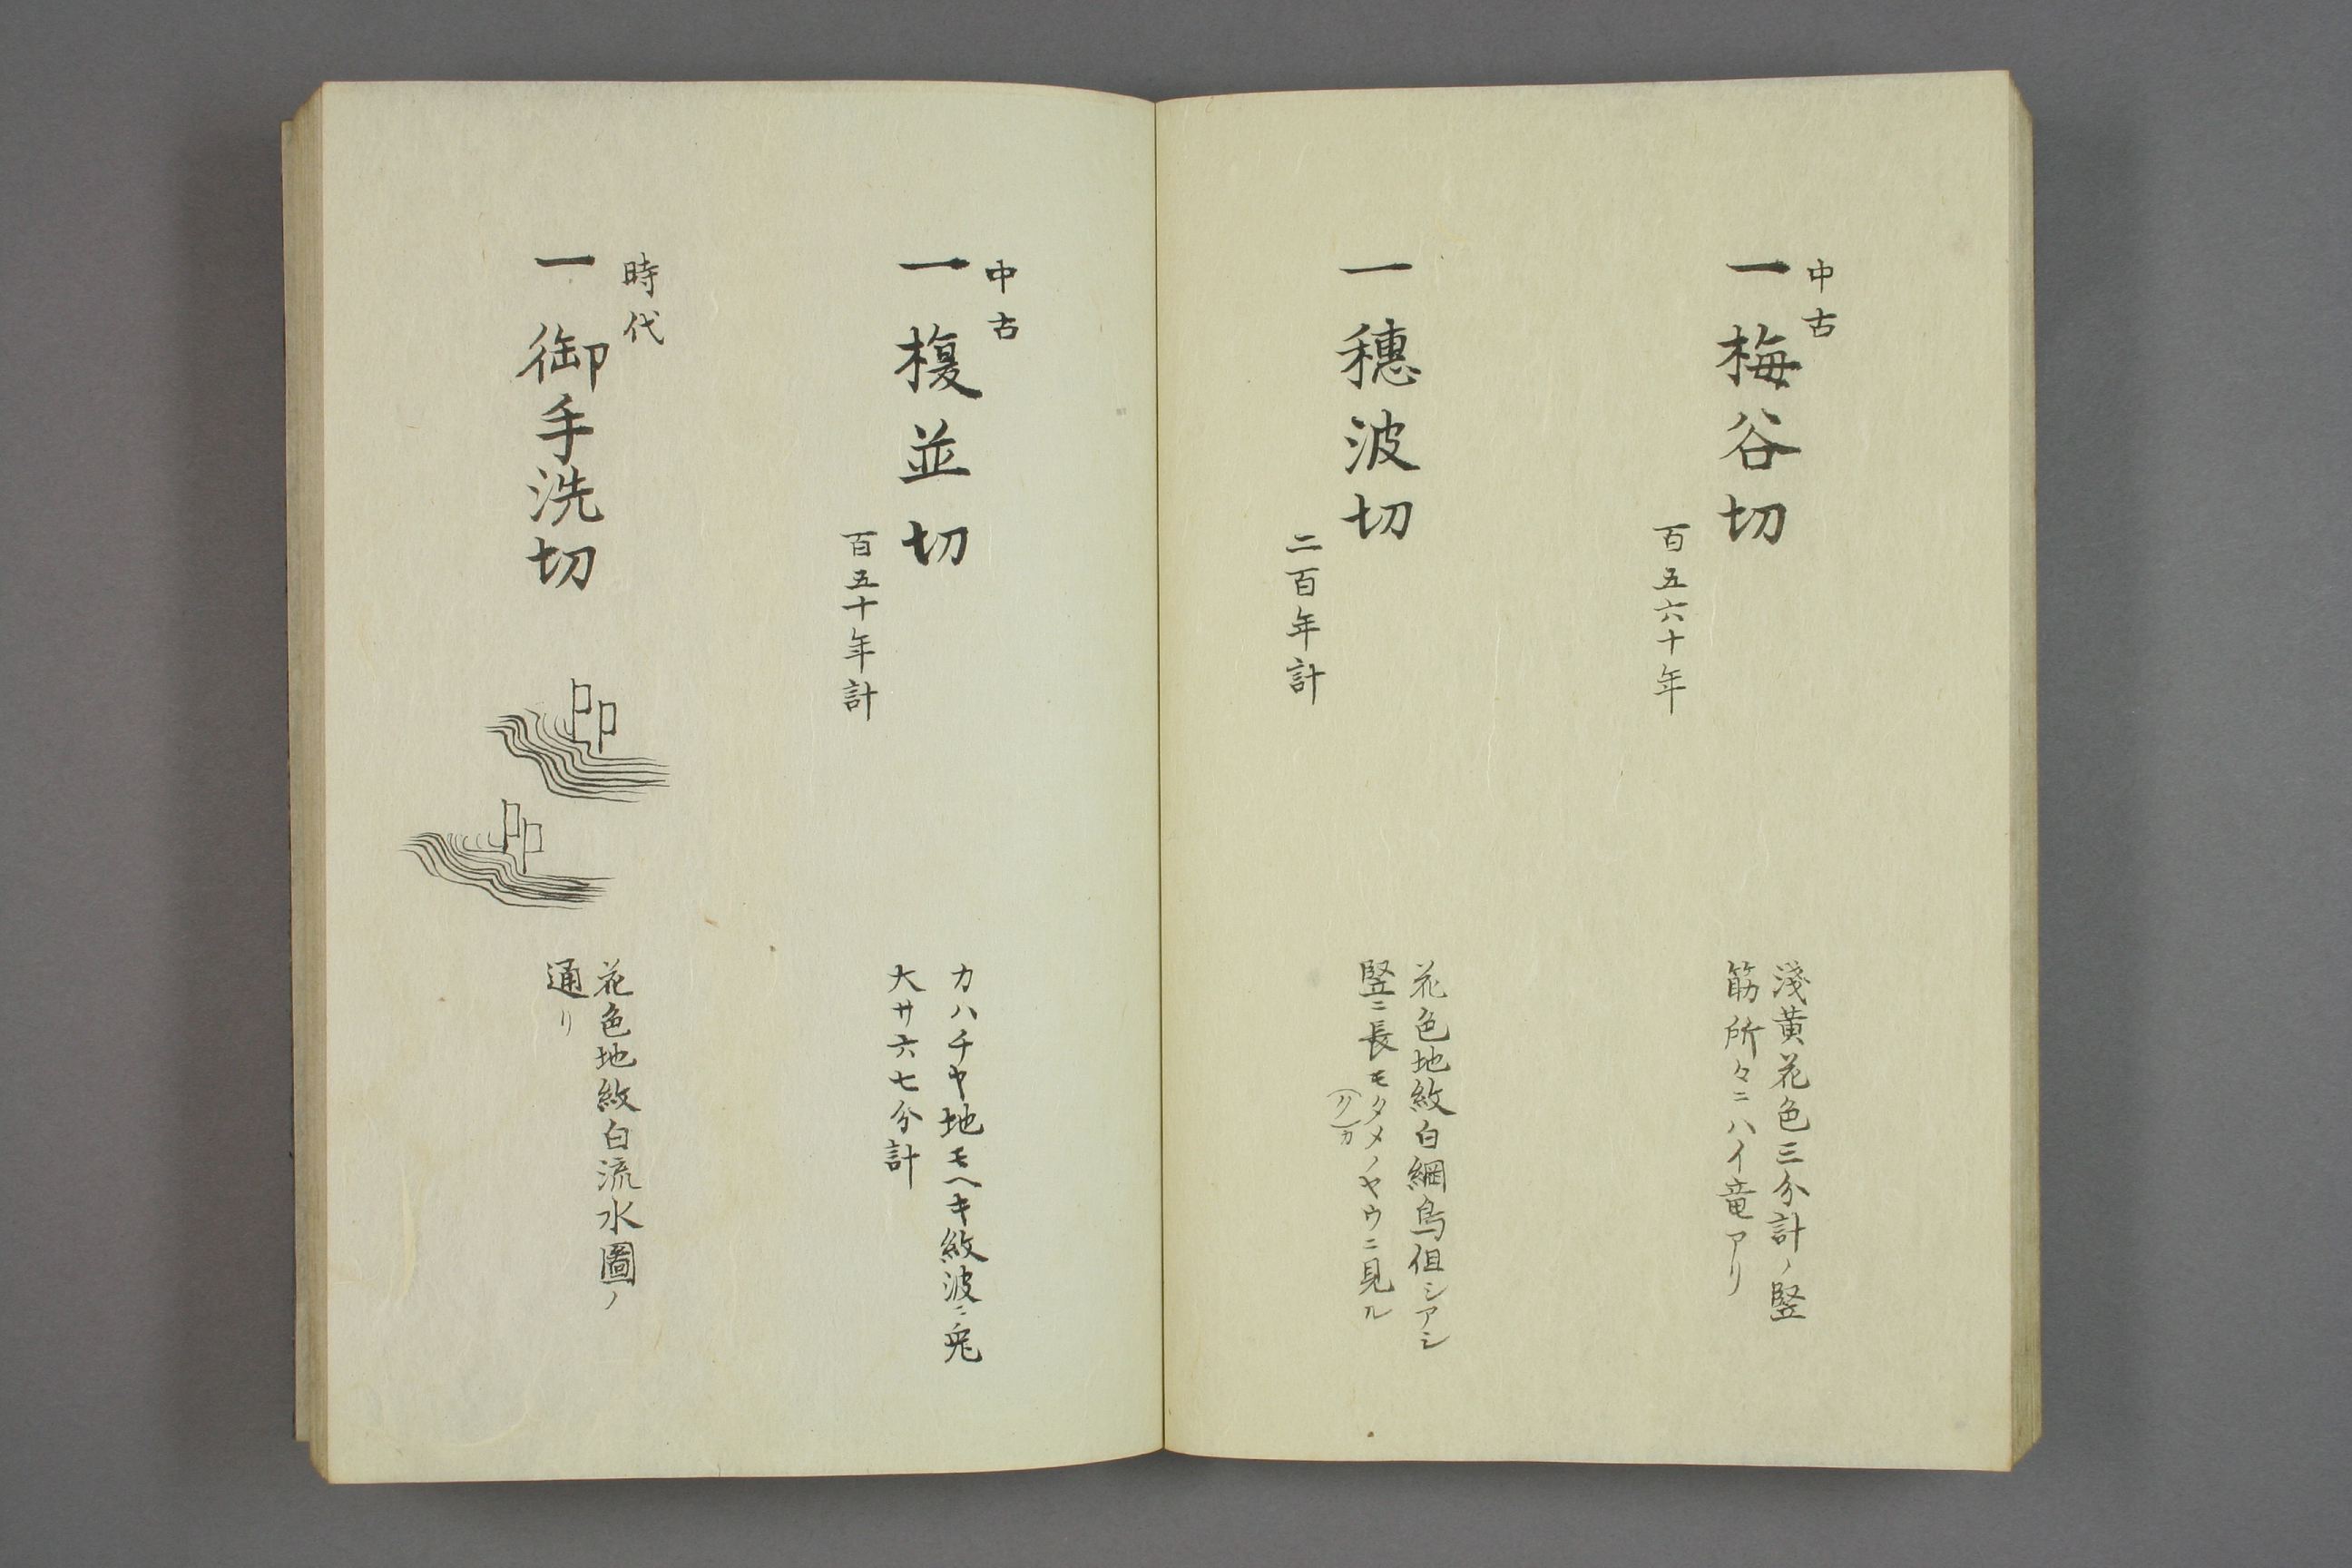 中古
一 梅谷切
百五六十年
淺黄花色三分計ノ竪
筋所々ニハイ竜アリ
一 穗波切
二百年計
花色地紋白網鳥但シアシ
竪ニ長モクタメノヤウニ見ル
中古
一 榎並切
百五十年計
カハチヤ地モヘキ紋波ニ兎
大サ六七分計
時代
一 御手洗切
花色地紋白流水圖ノ
通リ